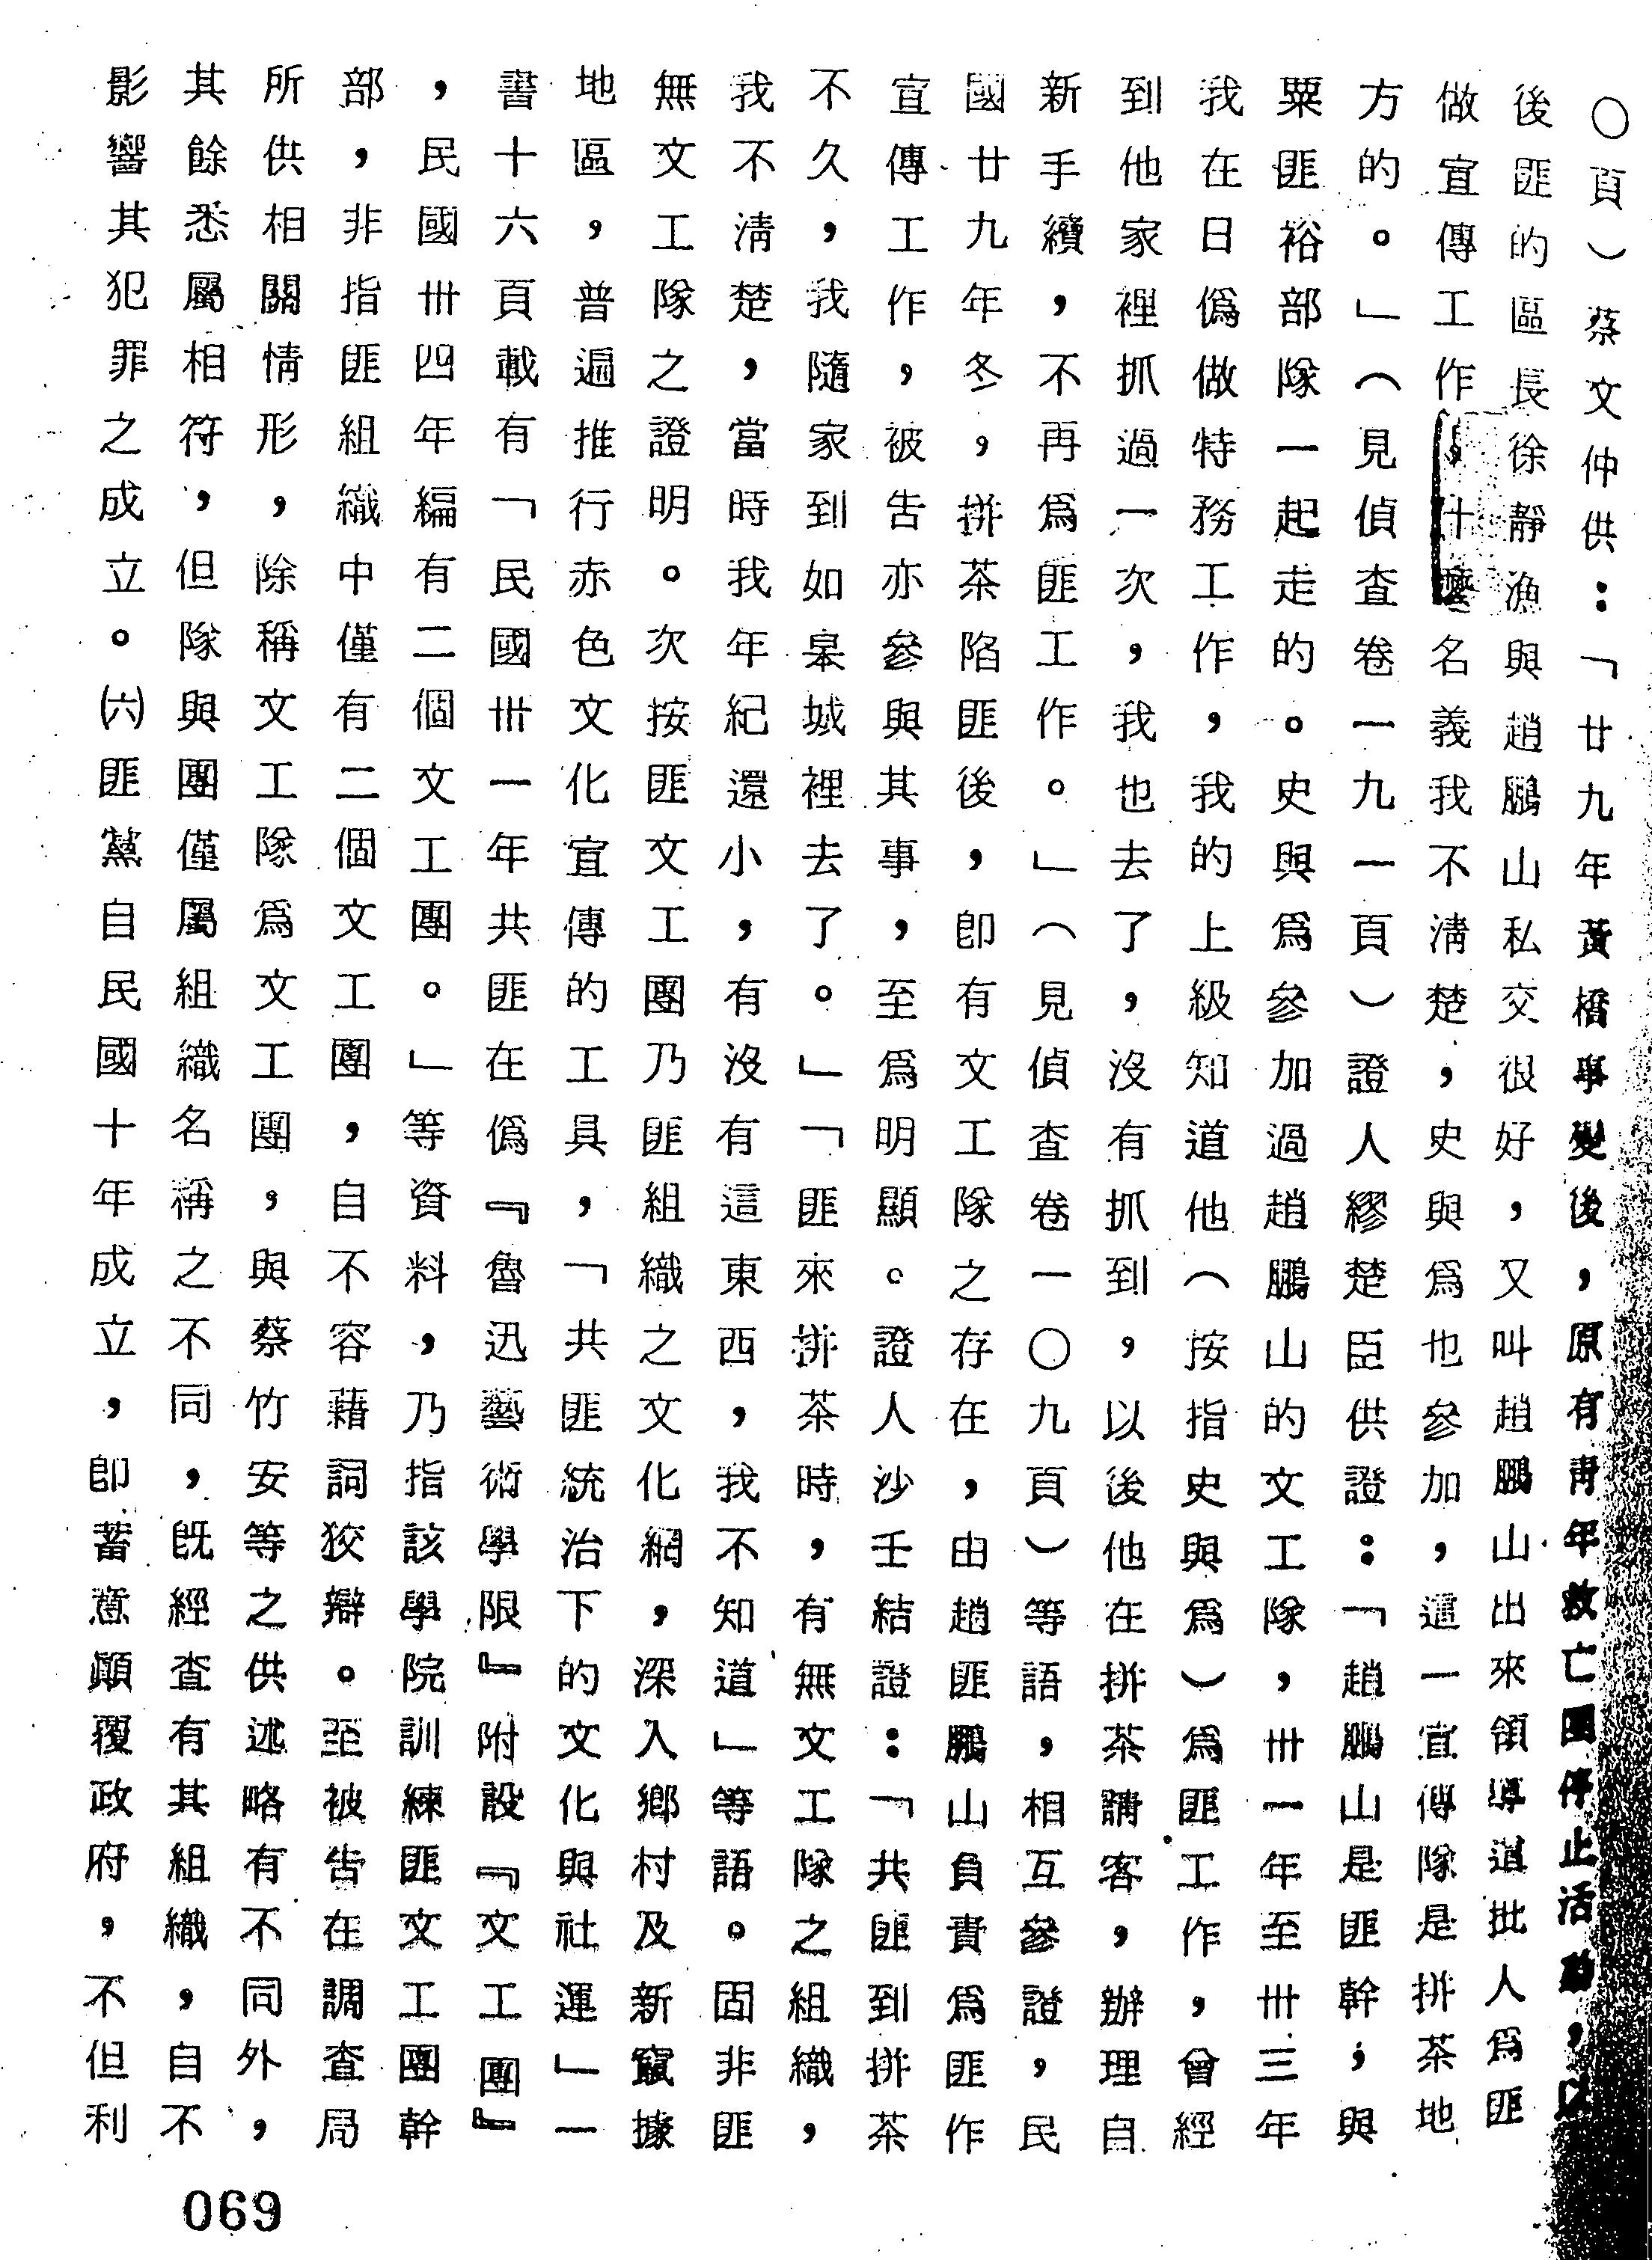 ○頁）蔡文仲供：「廿九年黃橋事變後，原有靑年救亡團停止活動，以
後匪的區長徐靜漁與趙鵬山私交很好，又叫趙鵬山出來領導這批人爲匪
做宣傳工作，什麼名義我不淸楚，史與爲也參加，這一宣傳隊是拼茶地
方的。」（見偵查卷一九一頁）證人繆楚臣供證：「趙鵬山是匪幹，與
粟匪裕部隊一起走的。史與爲參加過趙鵬山的文工隊，卅一年至卅三年
我在日僞做特務工作，我的上級知道他（按指史與爲）爲匪工作，曾經
到他家裡抓過一次，我也去了，沒有抓到，以後他在拼茶請客，辦理自
新手續，不再爲匪工作。」（見偵查卷一○九頁）等語，相互參證，民
國廿九年冬，拼茶陷匪後，卽有文工隊之存在，由趙匪鵬山負責爲匪作
宣傳工作，被告亦參與其事，至爲明顯。證人沙壬結證：「共匪到拼茶
不久，我隨家到如皋城裡去了。」「匪來拼茶時，有無文工隊之組織，
我不淸楚，當時我年紀還小，有沒有這東西，我不知道」等語。固非匪
無文工隊之證明。次按匪文工團乃匪組織之文化網，深入鄉村及新竄據
地區，普遍推行赤色文化宣傳的工具，「共匪統治下的文化與社運」一
書十六頁載有「民國卅一年共匪在僞『魯迅藝術學限』附設『文工團』
，民國卅四年編有二個文工團。」等資料，乃指該學院訓練匪文工團幹
部，非指匪組織中僅有二個文工團，自不容藉詞狡辯。至被告在調查局
所供相關情形，除稱文工隊爲文工團，與蔡竹安等之供述略有不同外，
其餘悉屬相符，但隊與團僅屬組織名稱之不同，旣經查有其組織，自不
影響其犯罪之成立。㈥匪黨自民國十年成立，卽蓄意顚覆政府，不但利
069